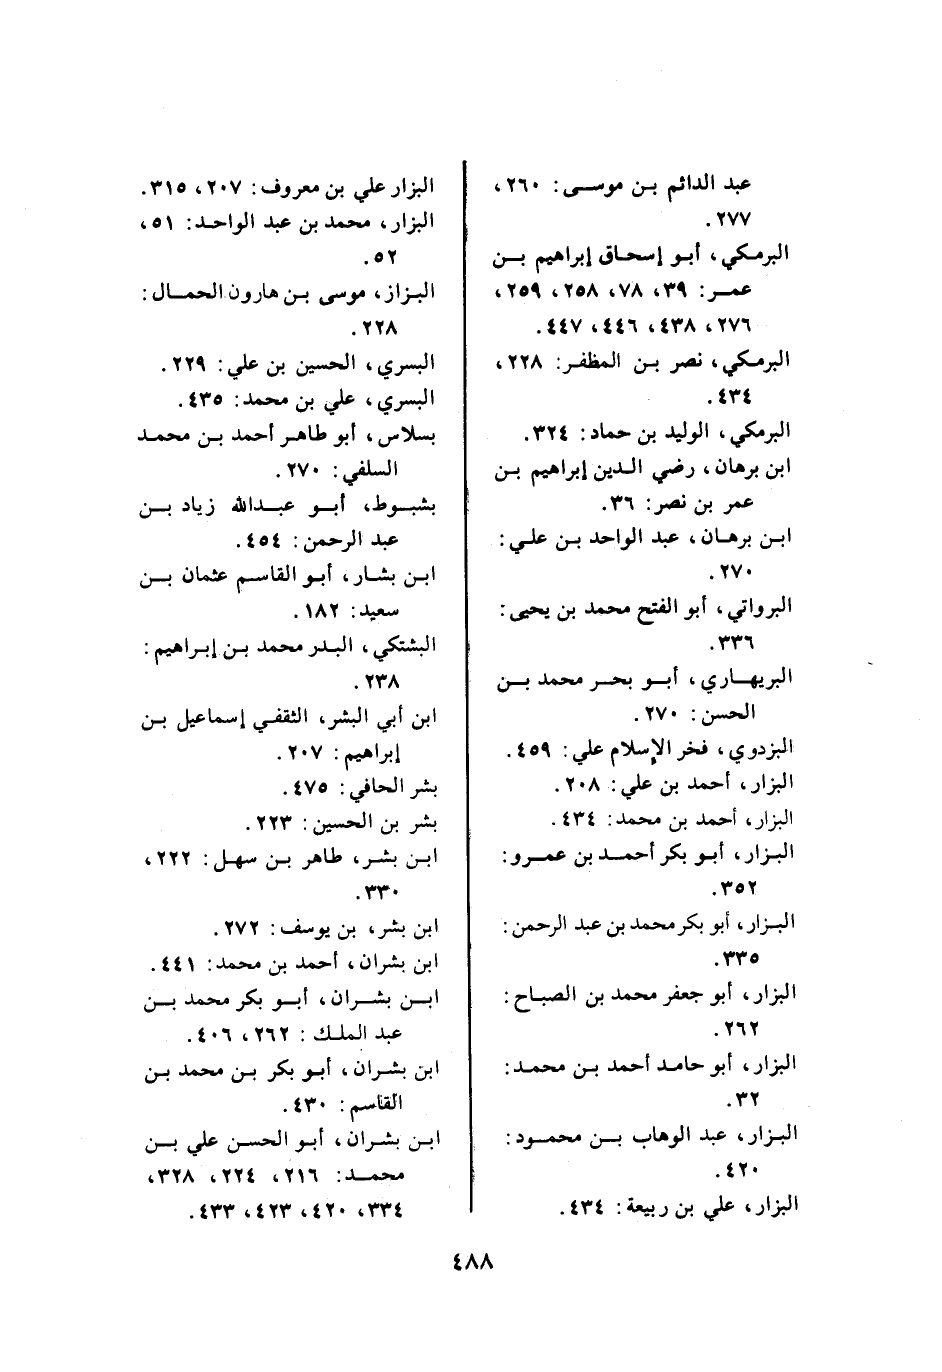 عبد الدائم بن موسى: ٢٦٠،
٢٧٧.
البرمكي، أبو إسحاق إبراهيم بن
عمر: ٣٩، ٧٨، ٢٥٨، ٢٥٩،
٢٧٦، ٤٣٨، ٤٤٦، ٤٤٧.
البرمكي، نصر بن المظفر: ٢٢٨،
٤٣٤.
البرمكي، الوليد بن حماد: ٣٢٤.
ابن برهان، رضي الدين إبراهيم بن
عمر بن نصر: ٣٦.
ابن برهان، عبد الواحد بن علي:
٢٧٠.
البرواتي، أبو الفتح محمد بن يحيى:
٣٣٦.
البربهاري، أبو بحر محمد بن
الحسن: ٢٧٠.
البزدوي، فخر الإسلام علي: ٤٥٩.
البزار، أحمد بن علي: ٢٠٨.
البزار، أحمد بن محمد: ٤٣٤.
البزار، أبو بكر أحمد بن عمرو:
٣٥٢.
البزار، أبو بكر محمد بن عبد الرحمن:
٣٣٥.
البزار، أبو جعفر محمد بن الصباح:
٢٦٢.
البزار، أبو حامد أحمد بن محمد:
٣٢.
البزار، عبد الوهاب بن محمود:
٤٢٠.
البزار، علي بن ربيعة: ٤٣٤.
البزار علي بن معروف: ٢٠٧، ٣١٥.
البزار، محمد بن عبد الواحد: ٥١،
٥٢.
البزاز، موسى بن هارون الحمال:
٢٢٨.
البسري، الحسين بن علي: ٢٢٩.
البسري، علي بن محمد: ٤٣٥.
بسلاس، أبو طاهر أحمد بن محمد
السلفي: ٢٧٠.
بشبوط، أبو عبدالله زياد بن
عبد الرحمن: ٤٥٤.
ابن بشار، أبو القاسم عثمان بن
سعيد: ١٨٢.
البشتكي، البدر محمد بن إبراهيم:
٢٣٨.
ابن أبي البشر، الثقفي إسماعيل بن
إبراهيم: ٢٠٧.
بشر الحافي: ٤٧٥.
بشر بن الحسين: ٢٢٣.
ابن بشر، طاهر بن سهل: ٢٢٢،
٣٣٠.
ابن بشر، بن يوسف: ٢٧٢.
ابن بشران، أحمد بن محمد: ٤٤١.
ابن بشران، أبو بكر محمد بن
عبد الملك: ٢٦٢، ٤٠٦.
ابن بشران، أبو بكر بن محمد بن
القاسم: ٤٣٠.
ابن بشران، أبو الحسن علي بن
محمد: ٢١٦، ٢٢٤، ٣٢٨،
٣٣٤، ٤٢٠، ٤٢٣، ٤٣٣.
٤٨٨